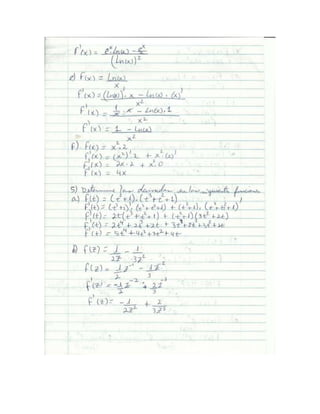 F'(x) = e^x Ln(x) - e^x/x
(Ln(x))^2
e) F(x) = Ln(x)
x
F'(x) = (Ln(x))'. x - Ln(x). (x)'
x^2
F'(x) = 1/x . x - Ln(x).1
x^2
F'(x) = 1 - Ln(x)
x^2
f). F(x) = x^2. 2
F'(x) = (x^2)'. 2 + x^2. (2)'
F'(x) = 2x. 2 + x^2. 0
F'(x) = 4x
5) Determine las derivadas en las siguiente
a) F(t) = (t^2+1). (t^3+t^2+1)
F'(t) = (t^2+1)'. (t^3+t^2+1) + (t^2+1). (t^3+t^2+1)'
F'(t) = 2t(t^3+t^2+1) + (t^2+1)(3t^2+2t)
F'(t) = 2t^4 + 2t^3 + 2t + 3t^4+2t^3+3t^2+2t
F'(t) = 5t^4+4t^3+3t^2+4t
b) f(z) = 1/2z - 1/3z^2
f(z) = 1/2 z^-1 - 1/3 z^-2
f'(z) = -1/2 z^-2 + 2/3 z^-3
f'(z) = -1/2z^2 + 2/3z^3